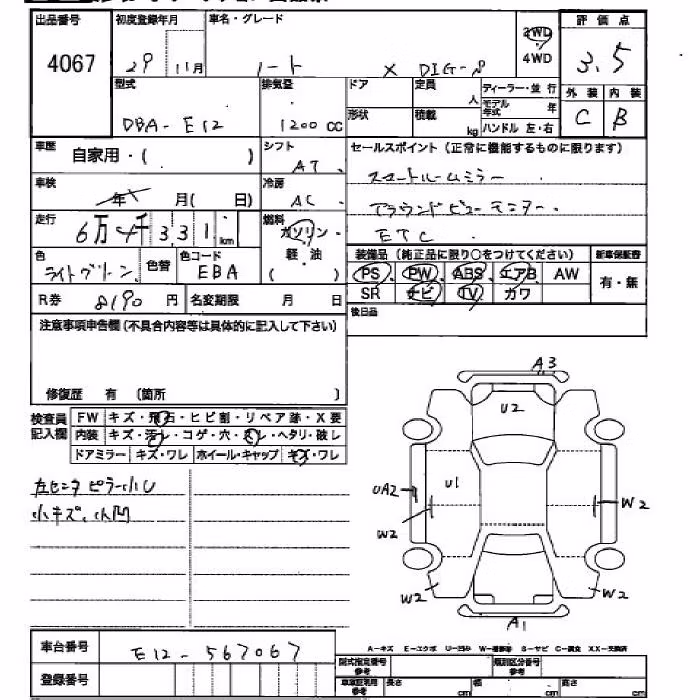 出品番号 初度登録年月 車名・グレード 評価点
4067 29 11月 ノート X DIG-S 2WD 4WD 3.5
型式 排気量 ドア 定員 人 ディーラー・並行 外装 内装
DBA-E12 1200 CC 形状 積載 kg モデル年式 年 ハンドル 左・右 C B
車歴 自家用・( ) シフト AT セールスポイント (正常に機能するものに限ります)
車検 年 月( 日) 冷房 AC スマートルームミラー
走行 6万4千331 km 燃料 ガソリン・軽・油 ( ) アラウンドビューモニター
ETC
色 ライトグリーン 色替 色コード EBA
装備品 (純正品に限り○をつけてください) 新車保証書
PS PW ABS エアB AW 有・無
SR ナビ TV カワ
R券 8190 円 名変期限 月 日
後日品
注意事項申告欄 (不具合内容等は具体的に記入して下さい)
修復歴 有 (箇所 )
検査員記入欄 FW キズ・飛石・ヒビ割・リペア跡・X要
内装 キズ・汚レ・コゲ・穴・スレ・ヘタリ・破レ
ドアミラー キズ・ワレ ホイール・キャップ キズ・ワレ
小キズ、小凹
A3
U2
U1
UA2
W2
W2
W2
W2
A1
車台番号 E12-567067
登録番号
A－キズ E－エクボ U－凹み W－補修跡 S－サビ C－腐食 XX－交換済
型式指定番号 参考 類別区分番号 参考
長さ cm 幅 cm 高さ cm